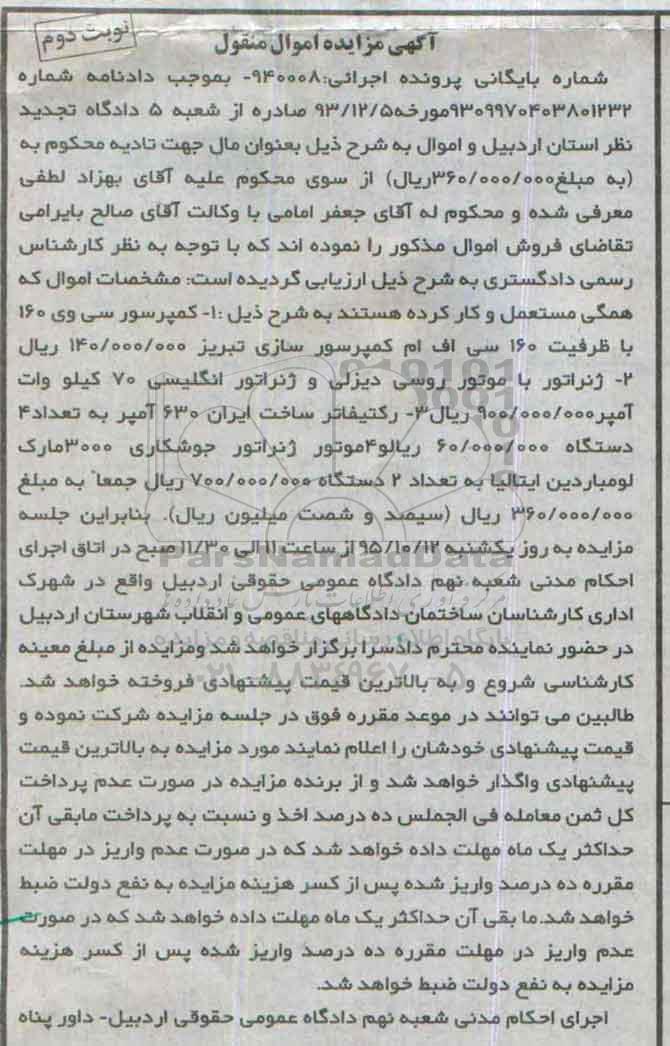 نوبت دوم
آگهی مزایده اموال منقول
شماره بایگانی پرونده اجرائی:۹۴۰۰۰۸- بموجب دادنامه شماره
۹۳۰۹۹۷۰۴۰۳۸۰۱۲۳۲مورخه۹۳/۱۲/۵ صادره از شعبه ۵ دادگاه تجدید
نظر استان اردبیل و اموال به شرح ذیل بعنوان مال جهت تادیه محکوم به
(به مبلغ۳۶۰/۰۰۰/۰۰۰ریال) از سوی محکوم علیه آقای بهزاد لطفی
معرفی شده و محکوم له آقای جعفر امامی با وکالت آقای صالح بایرامی
تقاضای فروش اموال مذکور را نموده اند که با توجه به نظر کارشناس
رسمی دادگستری به شرح ذیل ارزیابی گردیده است: مشخصات اموال که
همگی مستعمل و کار کرده هستند به شرح ذیل :۱- کمپرسور سی وی ۱۶۰
با ظرفیت ۱۶۰ سی اف ام کمپرسور سازی تبریز ۱۴۰/۰۰۰/۰۰۰ ریال
۲- ژنراتور با موتور روسی دیزلی و ژنراتور انگلیسی ۷۰ کیلو وات
آمپر۹۰۰/۰۰۰/۰۰۰ ریال۳- رکتیفاتر ساخت ایران ۶۳۰ آمپر به تعداد۴
دستگاه ۶۰/۰۰۰/۰۰۰ ریالو۴موتور ژنراتور جوشکاری ۳۰۰۰مارک
لومباردین ایتالیا به تعداد ۲ دستگاه ۷۰۰/۰۰۰/۰۰۰ ریال جمعاً به مبلغ
۳۶۰/۰۰۰/۰۰۰ ریال (سیصد و شصت میلیون ریال). بنابراین جلسه
مزایده به روز یکشنبه ۹۵/۱۰/۱۲ از ساعت ۱۱ الی ۱۱/۳۰ صبح در اتاق اجرای
ParsNamadData
احکام مدنی شعبه نهم دادگاه عمومی حقوقی اردبیل واقع در شهرک
اداری کارشناسان ساختمان دادگاههای عمومی و انقلاب شهرستان اردبیل
پایگاه اطلاع رسانی مناقصه و مزایده
در حضور نماینده محترم دادسرا برگزار خواهد شد ومزایده از مبلغ معینه
۰۲۱-۸۸۳۴۹۶۷۰-۵
کارشناسی شروع و به بالاترین قیمت پیشنهادی فروخته خواهد شد.
طالبین می توانند در موعد مقرره فوق در جلسه مزایده شرکت نموده و
قیمت پیشنهادی خودشان را اعلام نمایند مورد مزایده به بالاترین قیمت
پیشنهادی واگذار خواهد شد و از برنده مزایده در صورت عدم پرداخت
کل ثمن معامله فی الجملس ده درصد اخذ و نسبت به پرداخت مابقی آن
حداکثر یک ماه مهلت داده خواهد شد که در صورت عدم واریز در مهلت
مقرره ده درصد واریز شده پس از کسر هزینه مزایده به نفع دولت ضبط
خواهد شد.ما بقی آن حداکثر یک ماه مهلت داده خواهد شد که در صورت
عدم واریز در مهلت مقرره ده درصد واریز شده پس از کسر هزینه
مزایده به نفع دولت ضبط خواهد شد.
اجرای احکام مدنی شعبه نهم دادگاه عمومی حقوقی اردبیل- داور پناه